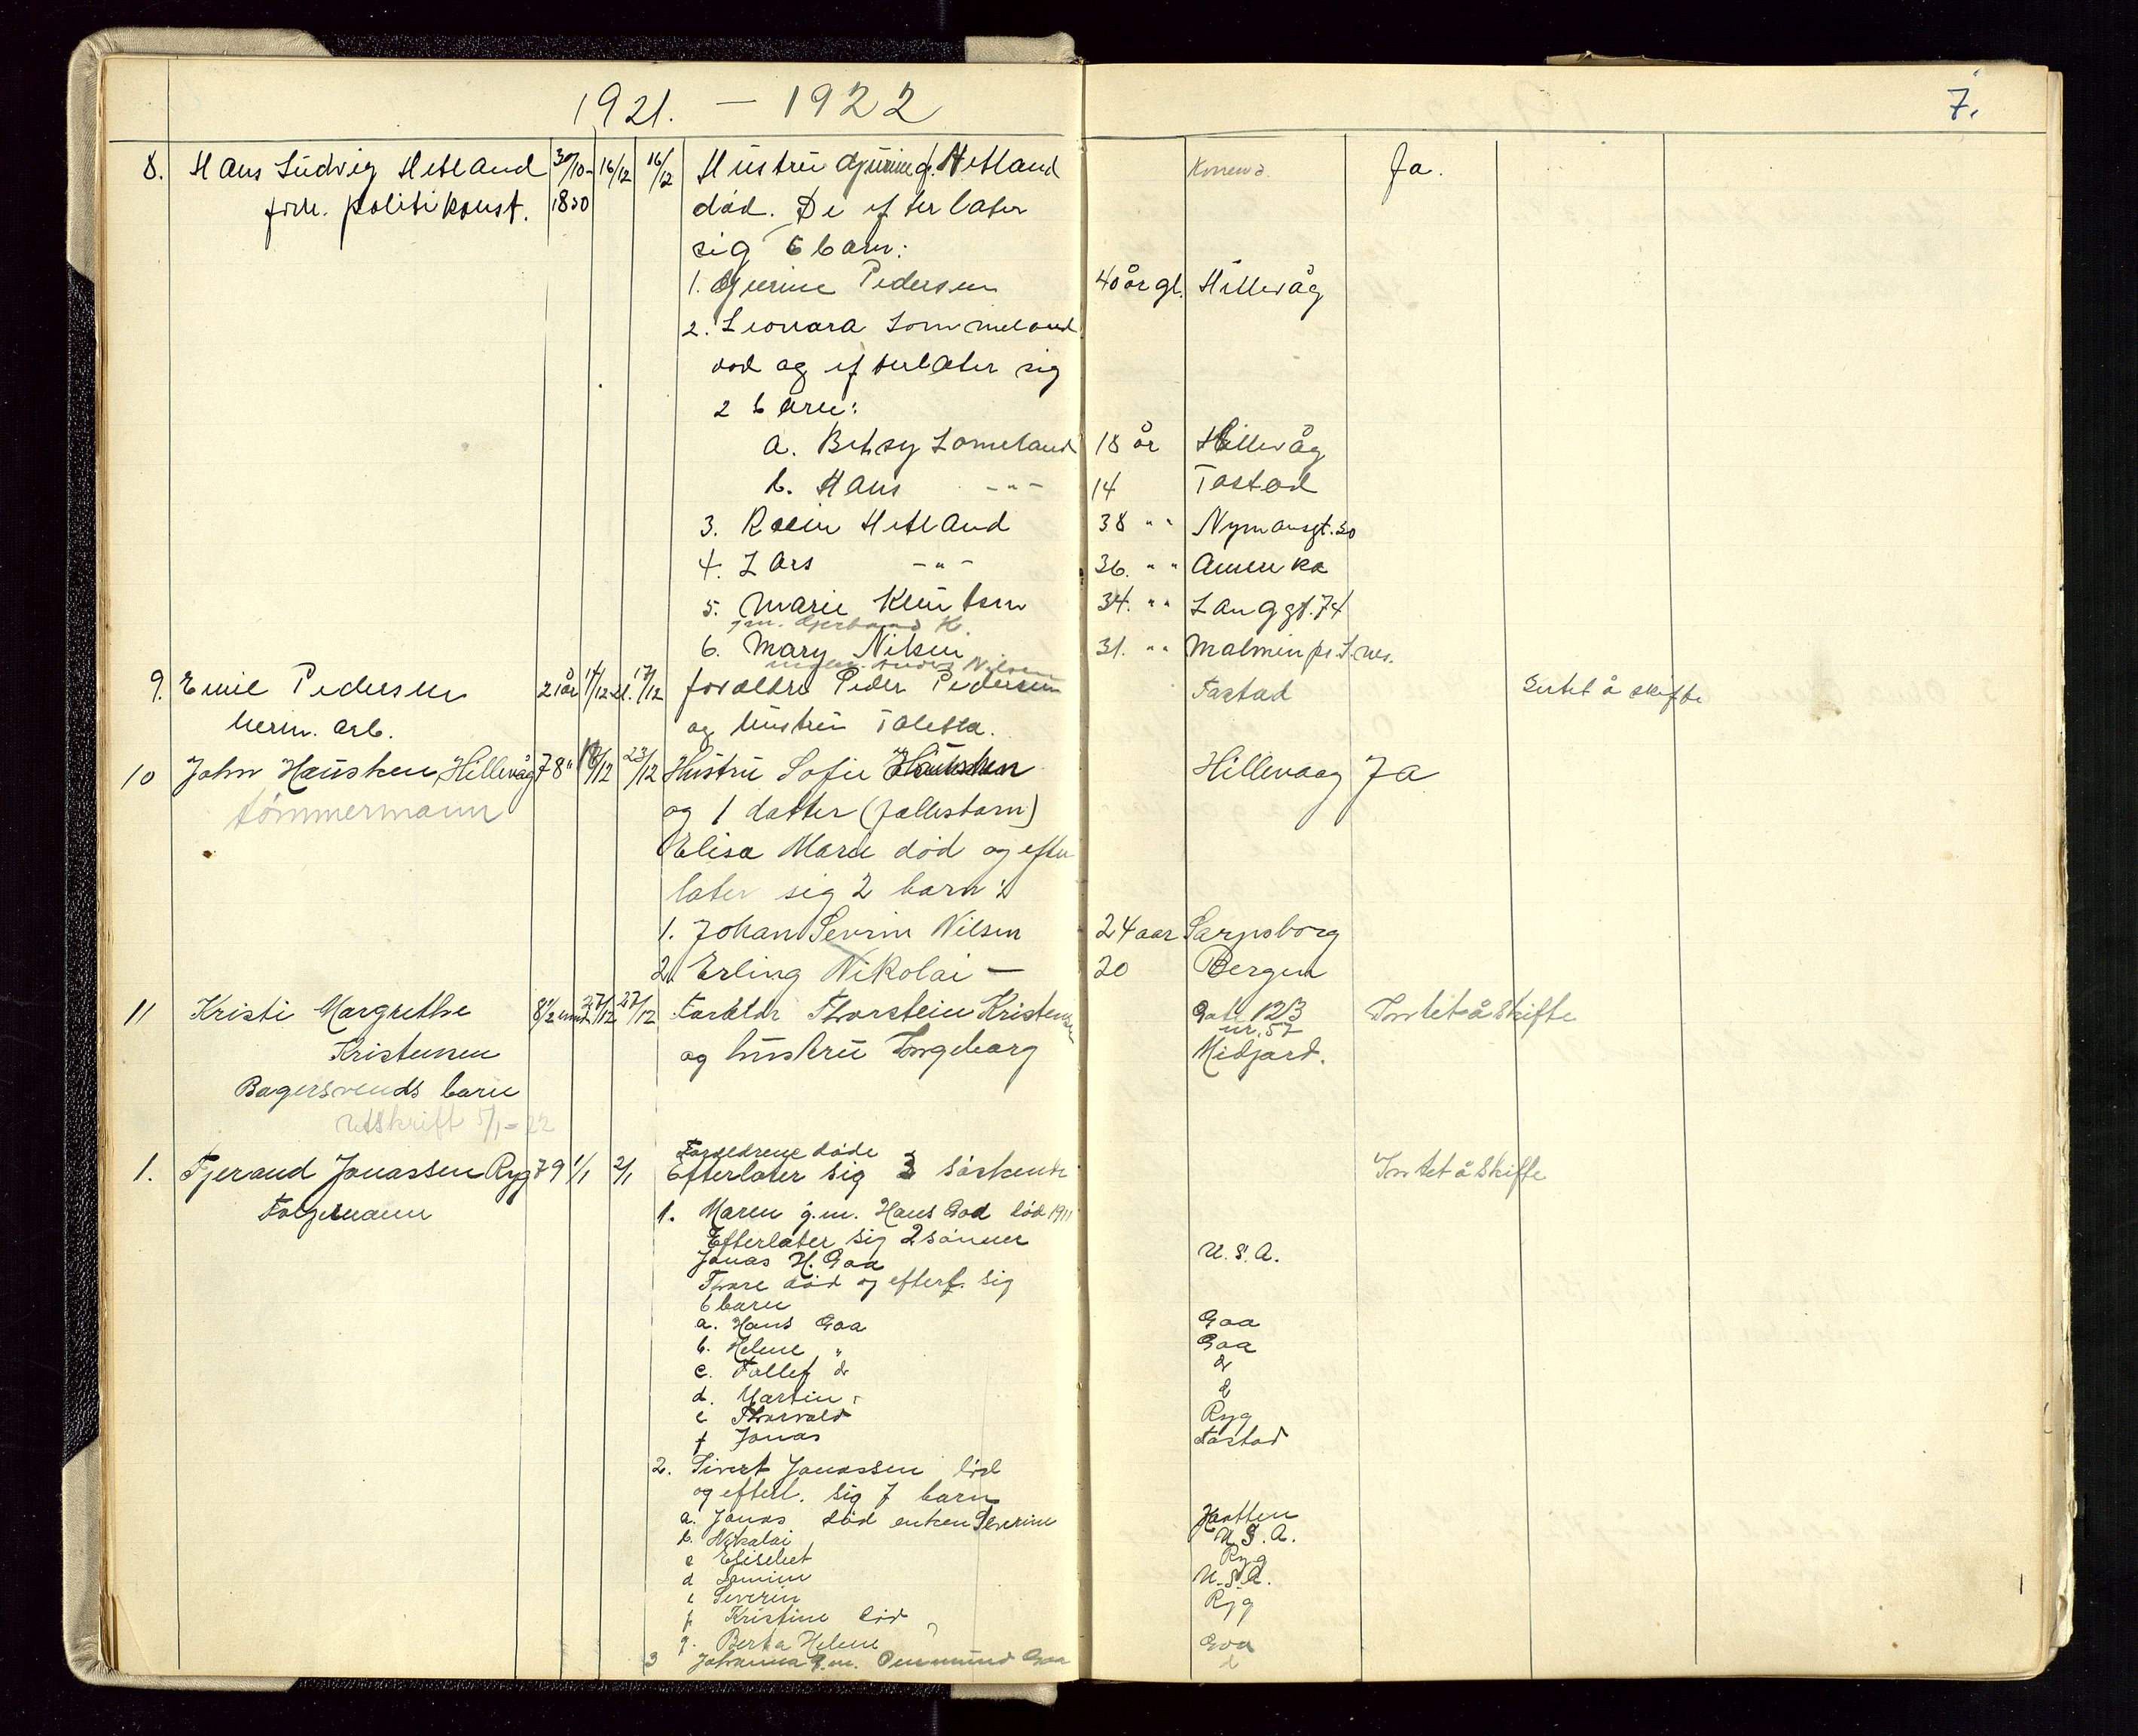 1921. — 1922
7.
8. Hans Ludvig Hetland 30/10- 16/12 16/12 Hustru Gjurine f. Hetland Ja.
forh. politikonst. 1850 död. De efterlater
sig 6 barn:
1. Gjurine Pedersen 40 år gl. Hillevåg
2. Leonara Lommeland
död og efterlater sig
2 barn:
a. Betsy Lomeland 18 år Hillevåg
b. Hans -"- 14 Tastad
3. Hetland 38 " " Nymansgt. 30
4. Lars -"- 36. " " Amerika
5. Marie Knutsen 34. " " Langgt. 74
gm. K.
6. Mary Nilsen 31. " "
Nilsen
9. Emil Pedersen 21 år 14/12 17/12 foreldre Peder Pedersen Tastad Intet å skifte
herm. arb. og hustru Taletta.
10 John Hausken, Hillevåg 78 " 18/12 23/12 Hustru Sofie Hausken Hillevaag Ja
tömmermann og 1 datter (fellesbarn)
Elisa Marie död og efter
later sig 2 barn:
1. Johan Severin Nilsen 24 aar Sarpsborg
2. Erling Nikolai — 20 Bergen
11 Kristi Margrethe 8 1/2 mnd 27/12 27/12 Foreldr Thorstein Kristensen Gate 123 Intet å skifte
nr. 57
Kristensen og hustru Ingeborg Midjord.
Bagersvends barn
Utskrift 5/1-22
Foreldrene döde
1. Tjerand Jonassen Ryg 79 1/1 2/1 Efterlater sig 3 söskende Intet å skifte
1. Maren g.m. Hans Goa död 1911
Efterlater sig 2 sönner
Jonas H. Goa U.S.A.
Thore död og efterl. sig
6 barn
a. Hans Goa Goa
b. Helene " Goa
c. Tollef do do
d. Martin " do
e Thorvald Ryg
f Jonas Tastad
2. Sivert Jonassen död
og efterl. sig 7 barn
a. Jonas död enken Severine
b. Nikolai U.S.A.
c Elisebet Ryg
d U.S.A.
e Severin Ryg
f Kristine död
g. Berta Helene Goa
3 Johanna g.m. Goa do